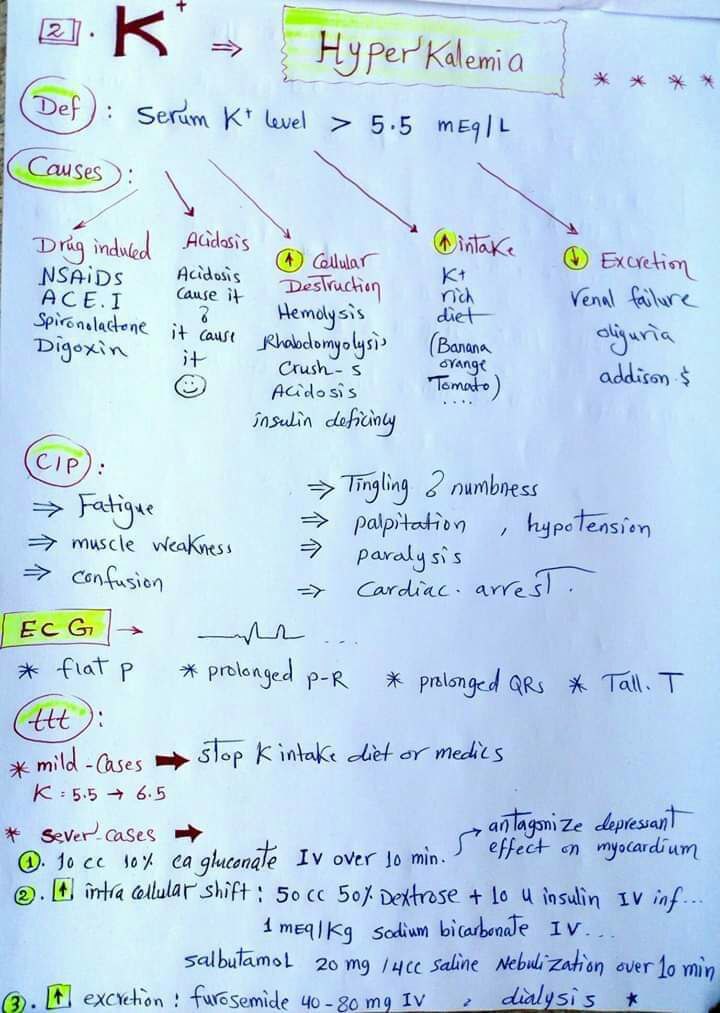 2. K+ ⇒ Hyper Kalemia * * * *
Def : Serum K+ level > 5.5 mEq/L
Causes :
Drug induced
NSAiDS
ACE.I
Spironolactone
Digoxin
Acidosis
Acidosis
cause it
&
it cause
it
☺
↑ Cellular
Destruction
Hemolysis
Rhabdomyolysis
Crush-s
Acidosis
insulin deficincy
↑ intake
K+
rich
diet
(Banana
orange
Tomato)
....
↓ Excretion
Renal failure
oliguria
addison $
C/P :
⇒ Fatigue
⇒ muscle weakness
⇒ confusion
⇒ Tingling & numbness
⇒ palpitation , hypotension
⇒ paralysis
⇒ Cardiac. arrest.
ECG → ...
* flat p * prolonged p-R * prolonged QRs * Tall. T
ttt :
* mild-Cases ➡ stop K intake diet or medics
K : 5.5 → 6.5
* sever cases ➡
1. 10 cc 10% ca gluconate IV over 10 min. → antagonize depressant
effect on myocardium
2. ↑ intra cellular shift : 50 cc 50% Dextrose + 10 u insulin IV inf...
1 mEq/Kg sodium bicarbonate IV...
salbutamol 20 mg /4cc saline Nebulization over 10 min
3. ↑ excretion : furosemide 40-80 mg IV , dialysis *